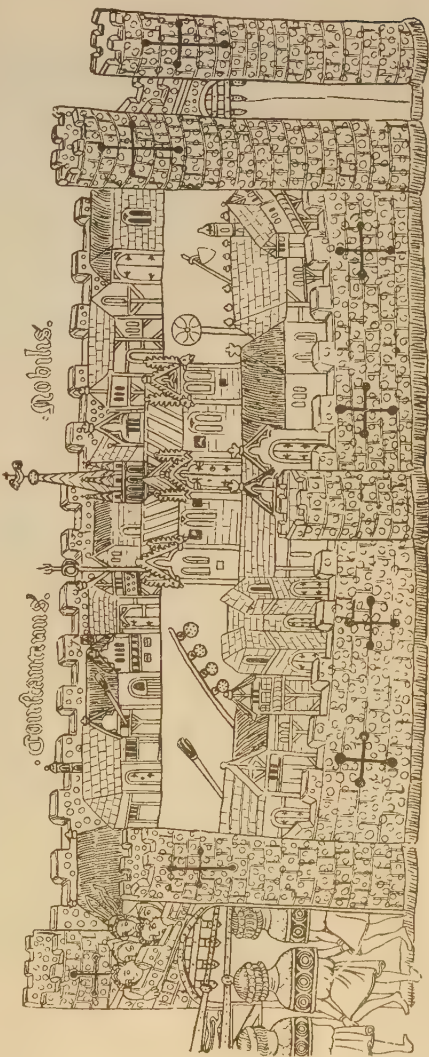 ·Constantinus. ·Nobilus.